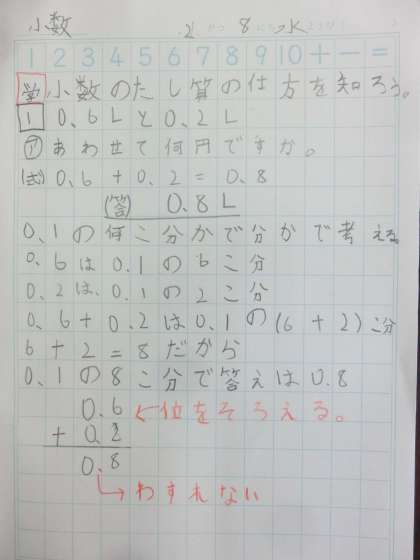 小数
2 8 水
1 2 3 4 5 6 7 8 9 10 + − =
学 小数のたし算の仕方を知ろう。
1 0.6Lと0.2L
㋐ あわせて何円ですか。
(式) 0.6+0.2=0.8
(答) 0.8L
0.1の何こ分かで分かで考える。
0.6は0.1の6こ分
0.2は、0.1の2こ分
0.6+0.2は0.1の(6+2)こ分
6+2=8だから
0.1の8こ分で答えは0.8
0.6 ←位をそろえる。
+ 0.2
0.8
→わすれない